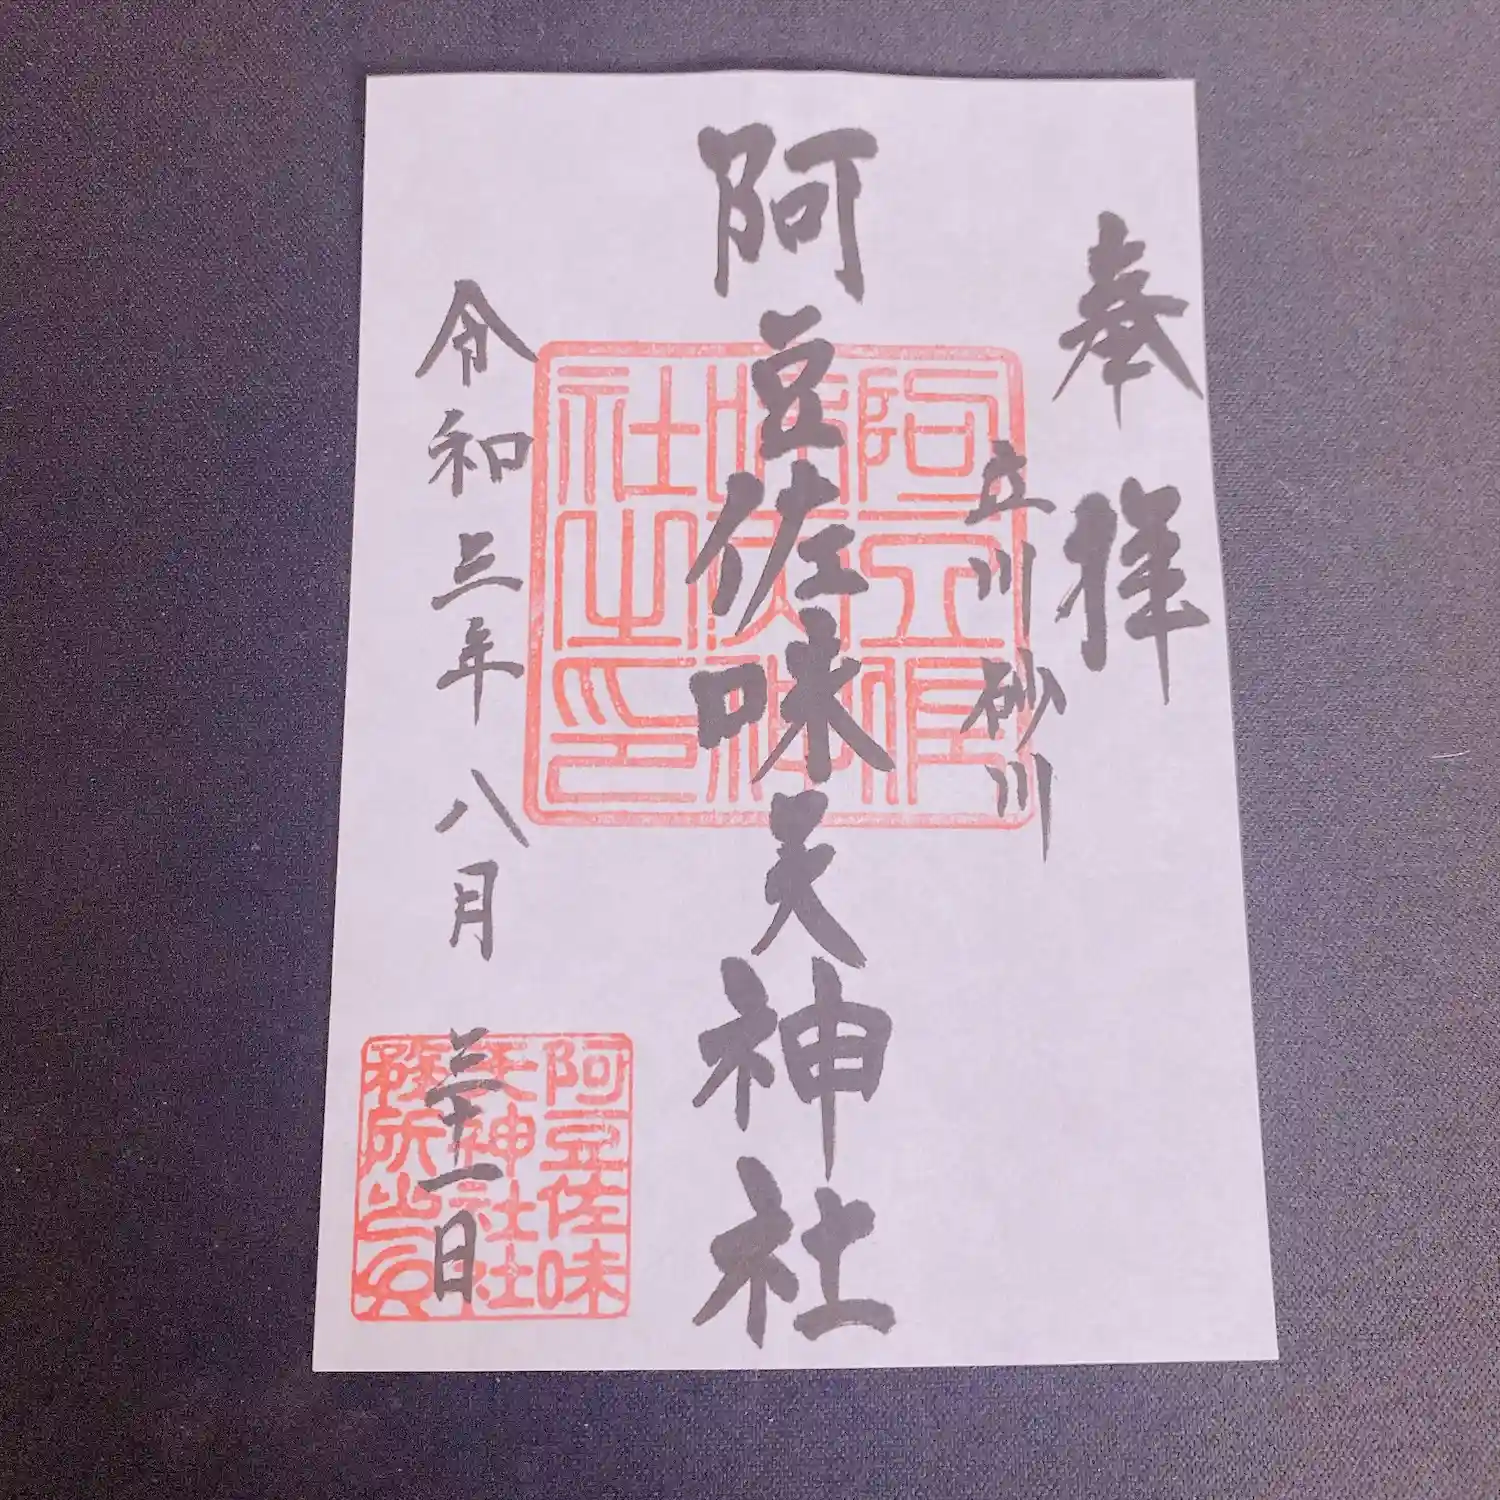 奉拝
立川砂川
阿豆佐味天神社
令和三年八月三十一日
阿豆佐
味天神
社之印
阿豆佐味
天神社社
務所之印